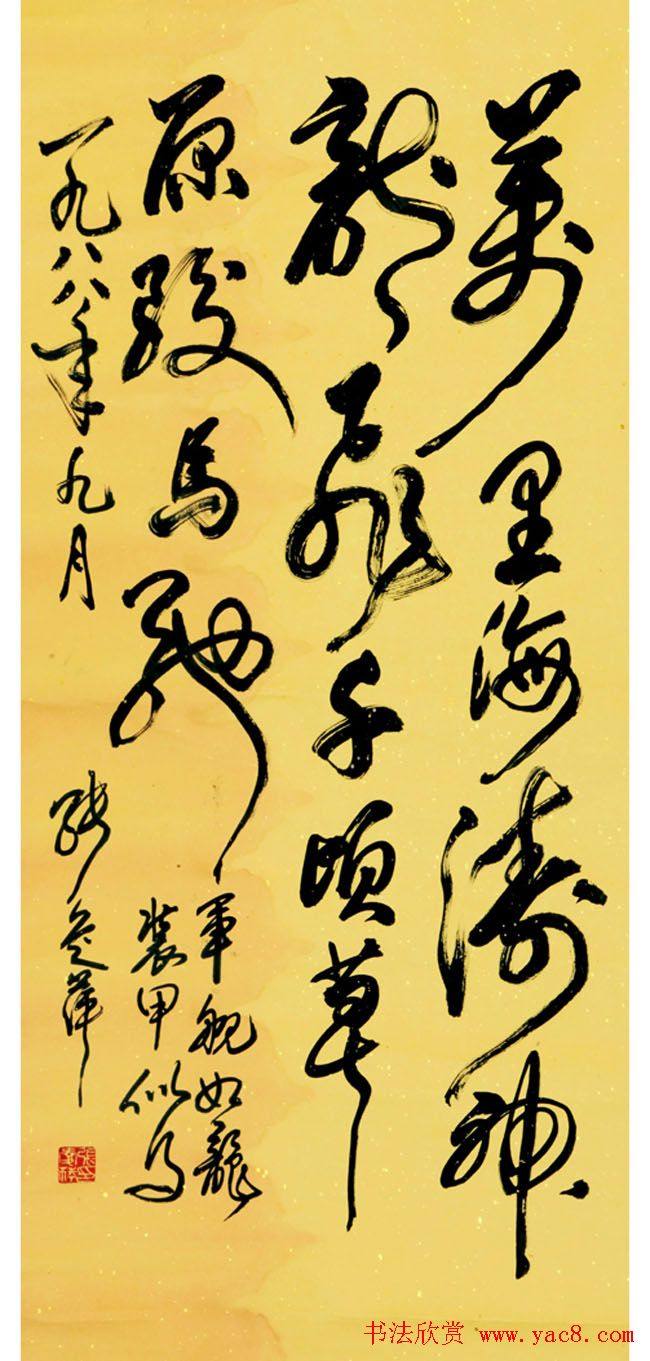 萬里海濤神
龍飛千頃草
原駿馬馳
軍舰如龍
装甲似马
一九八八年九月
张爱萍
书法欣赏 www.yac8.com